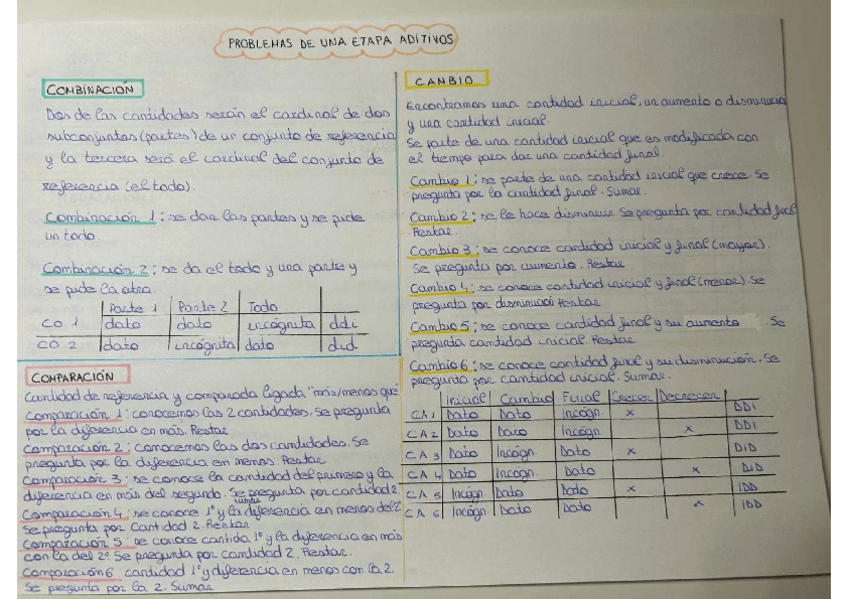 PROBLEMAS DE UNA ETAPA ADITIVOS
COMBINACIÓN
Dos de las cantidades serán el cardinal de dos
subconjuntos (partes) de un conjunto de referencia
y la tercera será el cardinal del conjunto de
referencia (el todo).
Combinación 1: se dan las partes y se pide
un todo.
Combinación 2: se da el todo y una parte y
se pide la otra.
Parte 1 Parte 2 Todo
CO 1 dato dato incógnita ddi
CO 2 dato incógnita dato did
COMPARACIÓN
Cantidad de referencia y comparada ligada "más/menos que"
Comparación 1: conocemos las 2 cantidades. Se pregunta
por la diferencia en más. Restar
Comparación 2: conocemos las dos cantidades. Se
pregunta por la diferencia en menos. Restar
Comparación 3: se conoce la cantidad del primero y la
diferencia en más del segundo. Se pregunta por cantidad 2.
sumar
Comparación 4: se conoce 1º y la diferencia en menos del 2º
Se pregunta por Cantidad 2. Restar
Comparación 5: se conoce cantida 1º y la diferencia en más
con la del 2º Se pregunta por cantidad 2. Restar.
Comparación 6: cantidad 1º y diferencia en menos con la 2.
Se pregunta por la 2. Sumar
CAMBIO
Encontramos una cantidad inicial, un aumento o disminución
y una cantidad inicial.
Se parte de una cantidad inicial que es modificada con
el tiempo para dar una cantidad final.
Cambio 1: se parte de una cantidad inicial que crece. Se
pregunta por la cantidad final. Sumar.
Cambio 2: se le hace disminuir. Se pregunta por cantidad final
Restar.
Cambio 3: se conoce cantidad inicial y final (mayor).
Se pregunta por aumento. Restar
Cambio 4: se conoce cantidad inicial y final (menor). Se
pregunta por disminución Restar
Cambio 5: se conoce cantidad final y su aumento Se
pregunta cantidad inicial. Restar
Cambio 6: se conoce cantidad final y su disminución. Se
pregunta por cantidad inicial. Sumar.
Inicial Cambio Final Crecer Decrecer
CA 1 Dato Dato Incógn. x DDI
CA 2 Dato Dato Incógn x DDI
CA 3 Dato Incógn. Dato x DID
CA 4 Dato Incógn. Dato x DID
CA 5 Incógn. Dato Dato x IDD
CA 6 Incógn. Dato Dato x IDD